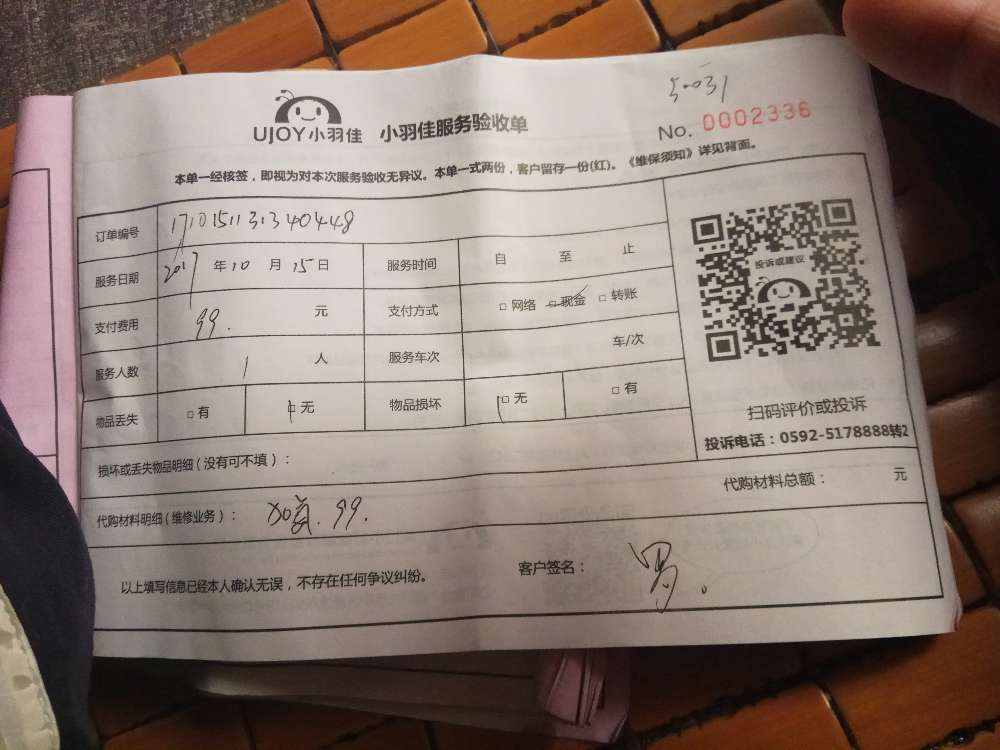 50031
UJOY小羽佳 小羽佳服务验收单
No. 0002336
本单一经核签，即视为对本次服务验收无异议。本单一式两份，客户留存一份(红)。《维保须知》详见背面。
订单编号 17101511313440448
服务日期 2017 年 10 月 15 日 服务时间 自 至 止
支付费用 99. 元 支付方式 □ 网络 □ 现金 □ 转账
服务人数 1 人 服务车次 车/次
物品丢失 □ 有 □ 无 物品损坏 □ 无 □ 有
投诉或建议
扫码评价或投诉
投诉电话：0592-5178888转2
损坏或丢失物品明细（没有可不填）：
代购材料总额： 元
代购材料明细（维修业务）： 加氟. 99.
以上填写信息已经本人确认无误，不存在任何争议纠纷。 客户签名：